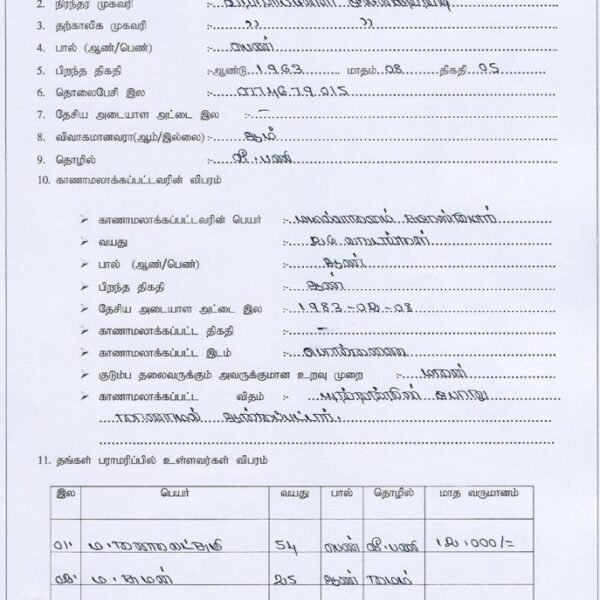 2. நிரந்தர முகவரி :-
3. தற்காலிக முகவரி :- ,, ,,
4. பால் (ஆண்/பெண்) :- பெண்
5. பிறந்த திகதி :-ஆண்டு 1963 மாதம் 08 திகதி 05
6. தொலைபேசி இல :- 0774679015
7. தேசிய அடையாள அட்டை இல :- –
8. விவாகமானவரா(ஆம்/இல்லை) :- ஆம்
9. தொழில் :- வீ. பணி
10. காணாமலாக்கப்பட்டவரின் விபரம்
➤ காணாமலாக்கப்பட்டவரின் பெயர் :-
➤ வயது :-
➤ பால் (ஆண்/பெண்) :- ஆண்
➤ பிறந்த திகதி :- ஆண்
➤ தேசிய அடையாள அட்டை இல :- 1983-02-08
➤ காணாமலாக்கப்பட்ட திகதி :- –
➤ காணாமலாக்கப்பட்ட இடம் :-
➤ குடும்ப தலைவருக்கும் அவருக்குமான உறவு முறை :- மகன்
➤ காணாமலாக்கப்பட்ட விதம் :- யுத்தத்தின் போது
காணாமல் ஆக்கப்பட்டார்.
11. தங்கள் பராமரிப்பில் உள்ளவர்கள் விபரம்
இல பெயர் வயது பால் தொழில் மாத வருமானம்
01. 54 பெண் வீ. பணி 12,000/=
02. ம. சுமன் 25 ஆண்